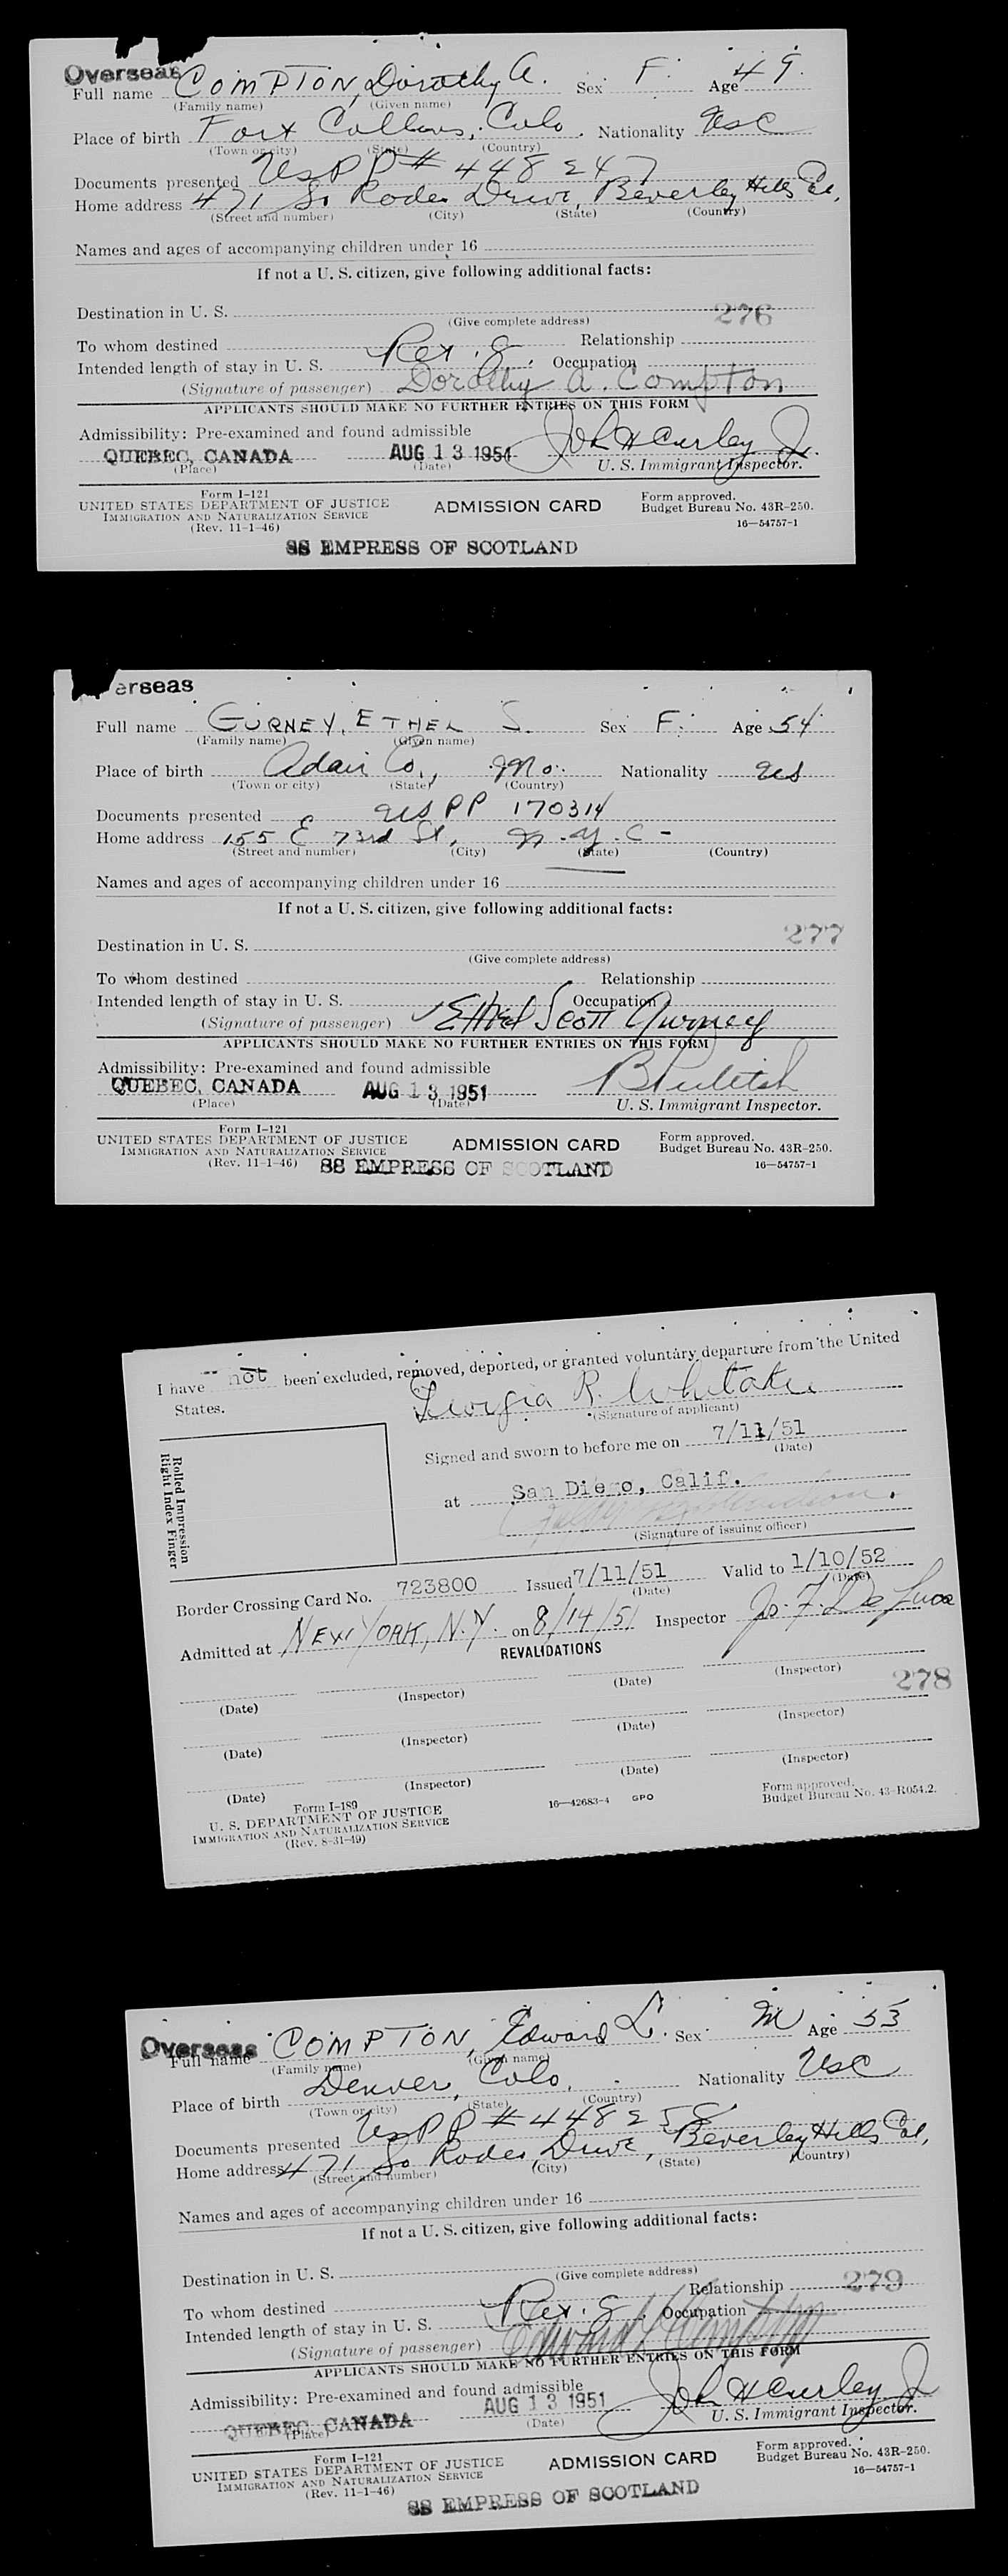 Overseas
Full name COMPTON, Dorothy A. Sex F. Age 49.
(Family name) (Given name)
Place of birth Fort Collins, Colo. Nationality USC
(Town or city) (State) (Country)
Documents presented US PP # 448247
Home address 471 So Rodeo Drive, Beverly Hills Cal,
(Street and number) (City) (State) (Country)
Names and ages of accompanying children under 16
If not a U. S. citizen, give following additional facts:
Destination in U. S. 276
(Give complete address)
To whom destined Relationship
Intended length of stay in U. S. Occupation
(Signature of passenger) Dorothy A. Compton
APPLICANTS SHOULD MAKE NO FURTHER ENTRIES ON THIS FORM
Admissibility: Pre-examined and found admissible
QUEBEC, CANADA AUG 13 1951 John H Curley Jr.
(Place) (Date) U. S. Immigrant Inspector.
Form I-121
UNITED STATES DEPARTMENT OF JUSTICE ADMISSION CARD Form approved.
IMMIGRATION AND NATURALIZATION SERVICE Budget Bureau No. 43R-250.
(Rev. 11-1-46) 16—54757-1
SS EMPRESS OF SCOTLAND
erseas
Full name GURNEY, ETHEL S. Sex F. Age 54
(Family name) (Given name)
Place of birth Adair Co., Mo. Nationality US
(Town or city) (State) (Country)
Documents presented US PP 170314
Home address 155 E 73rd St, N.Y.C-
(Street and number) (City) (State) (Country)
Names and ages of accompanying children under 16
If not a U. S. citizen, give following additional facts:
Destination in U. S. 277
(Give complete address)
To whom destined Relationship
Intended length of stay in U. S. Occupation
(Signature of passenger) Ethel Scott Gurney
APPLICANTS SHOULD MAKE NO FURTHER ENTRIES ON THIS FORM
Admissibility: Pre-examined and found admissible
QUEBEC, CANADA AUG 13 1951
(Place) (Date) U. S. Immigrant Inspector.
Form I-121
UNITED STATES DEPARTMENT OF JUSTICE ADMISSION CARD Form approved.
IMMIGRATION AND NATURALIZATION SERVICE Budget Bureau No. 43R-250.
(Rev. 11-1-46) SS EMPRESS OF SCOTLAND 16—54757-1
I have not been excluded, removed, deported, or granted voluntary departure from the United
States. Georgia R. Whitaker
(Signature of applicant)
Signed and sworn to before me on 7/11/51
(Date)
Rolled Impression
Right Index Finger
at San Diego, Calif.
(Signature of issuing officer)
Border Crossing Card No. 723800 Issued 7/11/51 Valid to 1/10/52
(Date) (Date)
Admitted at NEW YORK, N.Y. on 8/14/51 Inspector
REVALIDATIONS
(Date) (Inspector) (Date) (Inspector)
278
(Date) (Inspector) (Date) (Inspector)
(Date) (Inspector) (Date) (Inspector)
Form I-189
U. S. DEPARTMENT OF JUSTICE 16—42683-4 GPO Form approved.
IMMIGRATION AND NATURALIZATION SERVICE Budget Bureau No. 43-R054.2.
(Rev. 8-31-49)
Overseas
Full name COMPTON, Edward L. Sex M Age 53
(Family name) (Given name)
Place of birth Denver, Colo. Nationality USC
(Town or city) (State) (Country)
Documents presented US PP # 448258
Home address 471 So Rodeo Drive, Beverly Hills Cal,
(Street and number) (City) (State) (Country)
Names and ages of accompanying children under 16
If not a U. S. citizen, give following additional facts:
Destination in U. S.
(Give complete address)
To whom destined Relationship 279
Intended length of stay in U. S. Occupation
(Signature of passenger) Edward L Compton
APPLICANTS SHOULD MAKE NO FURTHER ENTRIES ON THIS FORM
Admissibility: Pre-examined and found admissible
QUEBEC, CANADA AUG 13 1951 John H Curley Jr
(Place) (Date) U. S. Immigrant Inspector.
Form I-121
UNITED STATES DEPARTMENT OF JUSTICE ADMISSION CARD Form approved.
IMMIGRATION AND NATURALIZATION SERVICE Budget Bureau No. 43R-250.
(Rev. 11-1-46) 16—54757-1
SS EMPRESS OF SCOTLAND